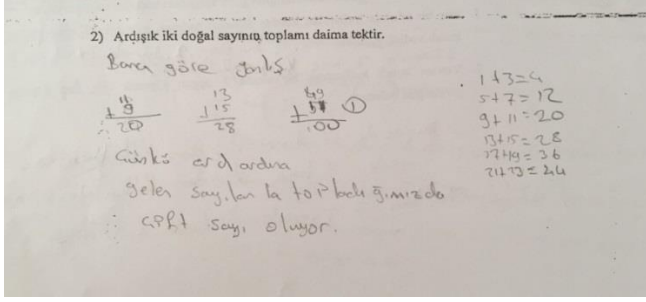 2) Ardışık iki doğal sayının toplamı daima tektir.
Bana göre yanlış
11
+ 9
20
13
+ 15
28
49
+ 51
100
1
Çünkü ard ardına
gelen sayıları topladığımızda
çift sayı oluyor.
1+3=4
5+7=12
9+11=20
13+15=28
17+19=36
21+23=44